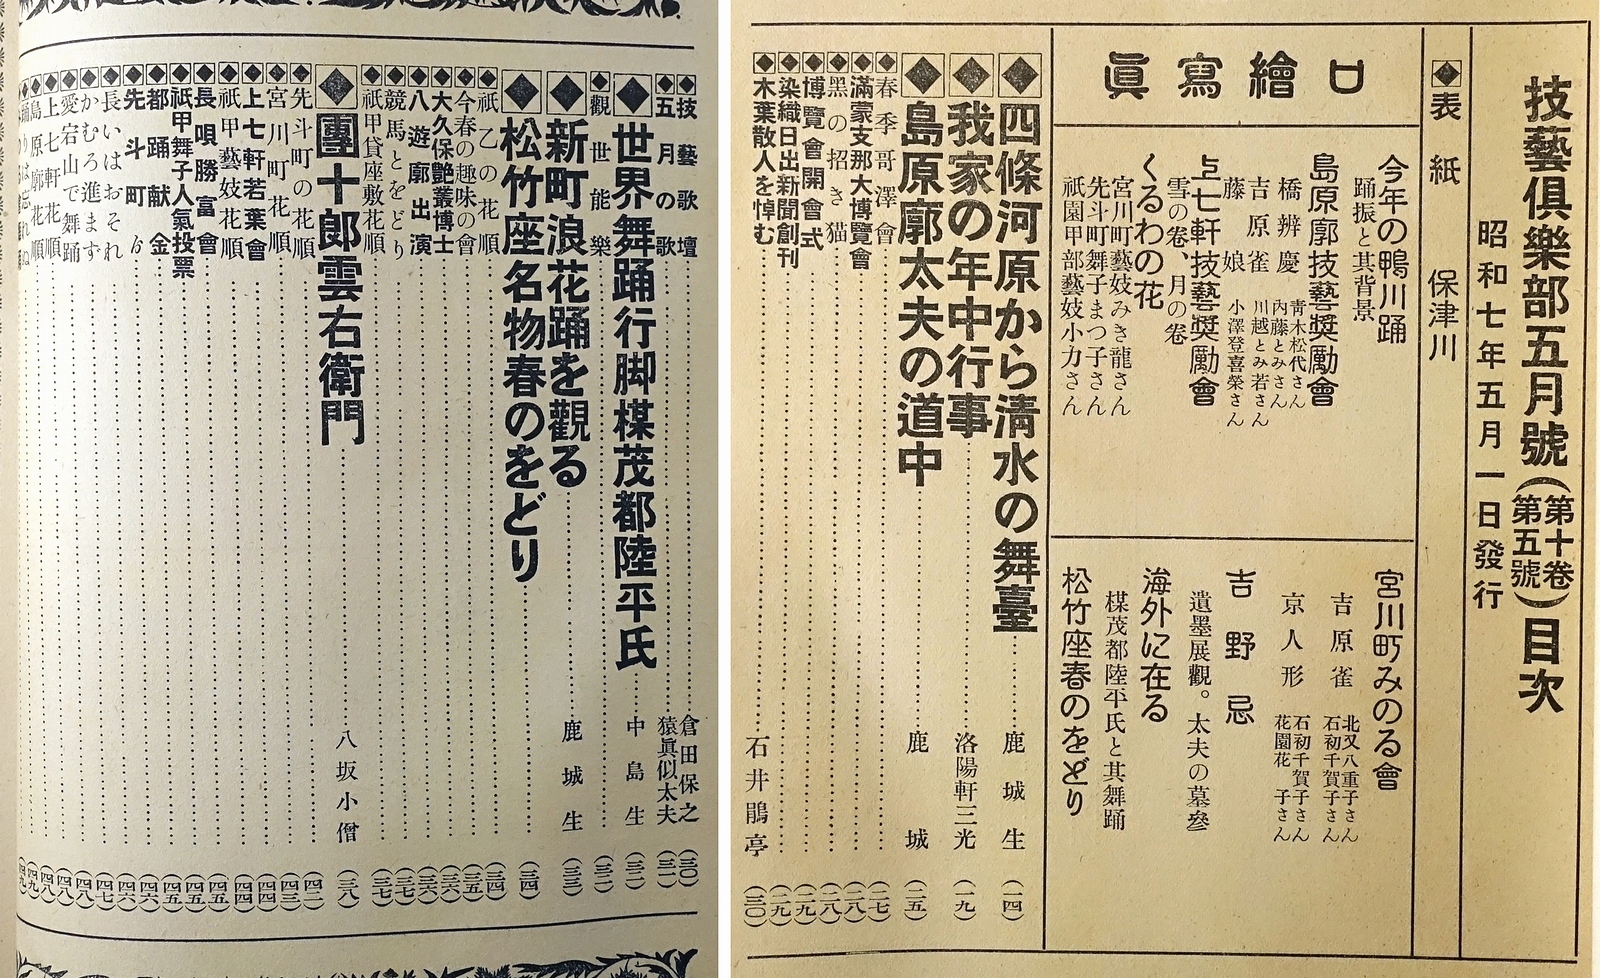 技藝俱樂部五月號(第十卷第五號)目次
昭和七年五月一日發行
表紙 保津川
口繪寫眞
今年の鴨川踊
踊振と其背景
島原廓技藝奬勵會
橋辨慶 靑木松代さん 內藤とみさん
吉原雀 川越とみ若さん
藤娘 小澤登喜榮さん
上七軒技藝奬勵會
雪の卷、月の卷
くるわの花
宮川町藝妓みき龍さん
先斗町舞子まつ子さん
祇園甲部藝妓小力さん
宮川町みのる會
吉原雀 北又八重子さん 石初千賀子さん
京人形 石初千賀子さん 花園花子さん
吉野忌
遺墨展觀。太夫の墓參
海外に在る
楳茂都陸平氏と其舞踊
松竹座春のをどり
四條河原から淸水の舞臺 鹿城生 (一四)
我家の年中行事 洛陽軒三光 (一九)
島原廓太夫の道中 鹿城 (二五)
春季哥澤會 (二七)
滿蒙支那大博覽會 (二八)
黑の招き猫 (二八)
博覽會開會式 (二九)
染織日出新聞創刊 (二九)
木葉散人を悼む 石井鵑亭 (三〇)
技藝歌壇 倉田保之 (三〇)
五月の歌 猿眞似太夫 (三一)
世界舞踊行脚楳茂都陸平氏 中島生 (三二)
觀世能樂 (三二)
新町浪花踊を觀る 鹿城生 (三三)
松竹座名物春のをどり (三四)
祇乙の花順 (三四)
今春の趣味の會 (三五)
大久保艶叢博士 (三六)
八遊廓出演 (三六)
競馬とをどり (三七)
祇甲貸座敷花順 (三七)
團十郞雲右衞門 八坂小僧 (三八)
先斗町の花順 (四二)
宮川町花順 (四三)
上七軒若葉會 (四四)
祇甲藝妓花順 (四四)
長唄勝富會 (四五)
祇甲舞子人氣投票 (四五)
都踊獻金 (四五)
先斗町 (四六)
長いはおそれ (四六)
かむろ進ます (四七)
愛宕山で舞踊 (四八)
上七軒花順 (四八)
島原廓花順 (四八)